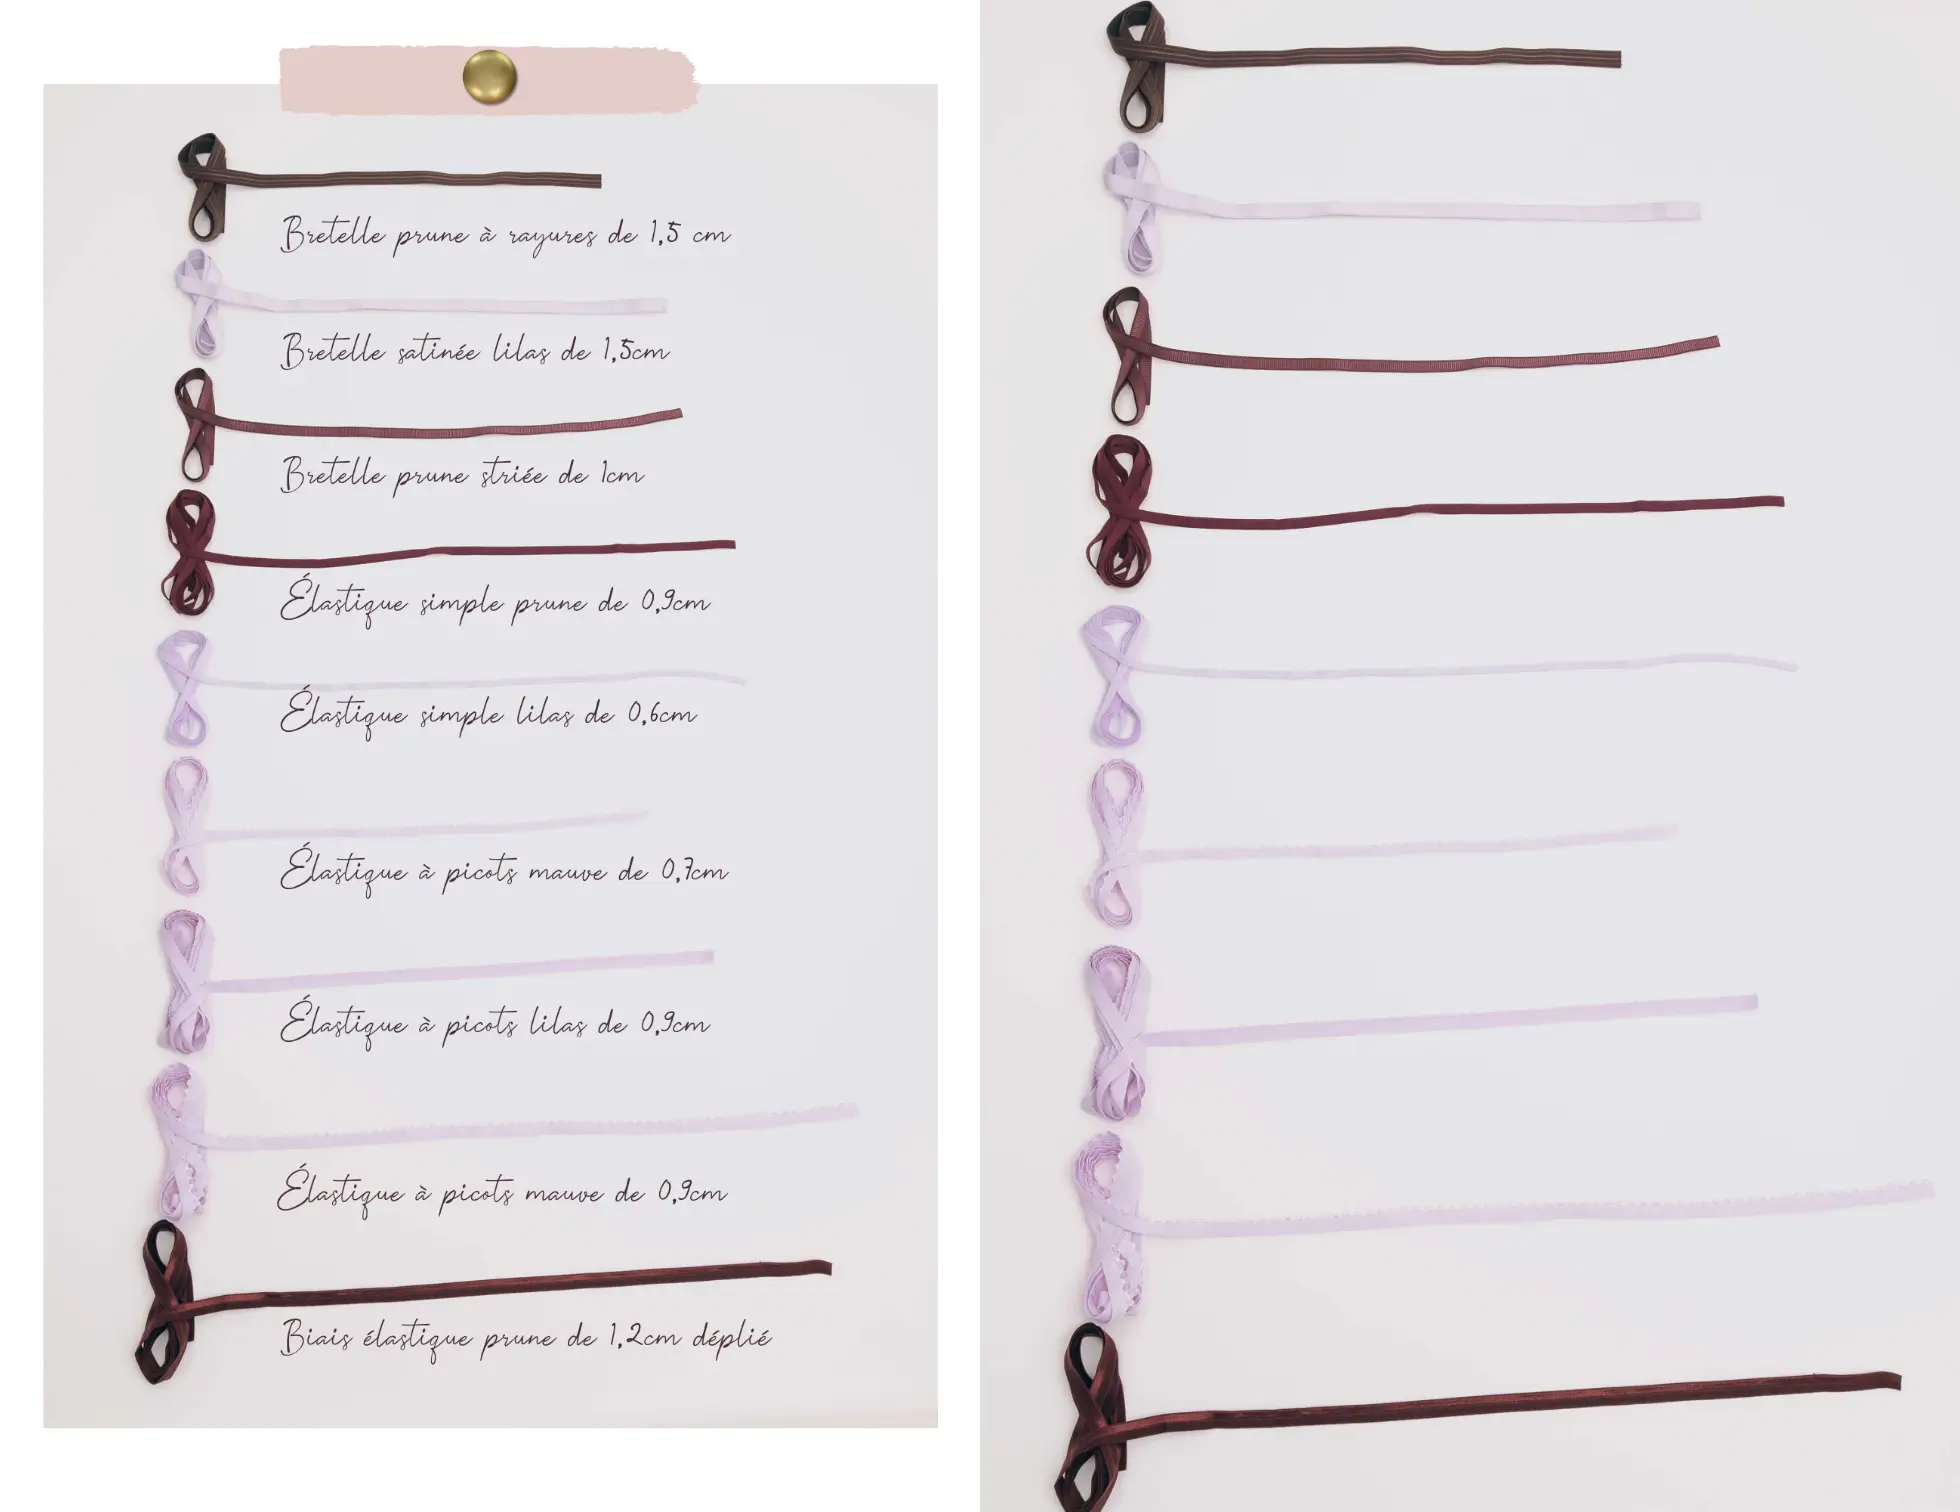 Bretelle prune à rayures de 1,5 cm
Bretelle satinée lilas de 1,5cm
Bretelle prune striée de 1cm
Élastique simple prune de 0,9cm
Élastique simple lilas de 0,6cm
Élastique à picots mauve de 0,7cm
Élastique à picots lilas de 0,9cm
Élastique à picots mauve de 0,9cm
Biais élastique prune de 1,2cm déplié